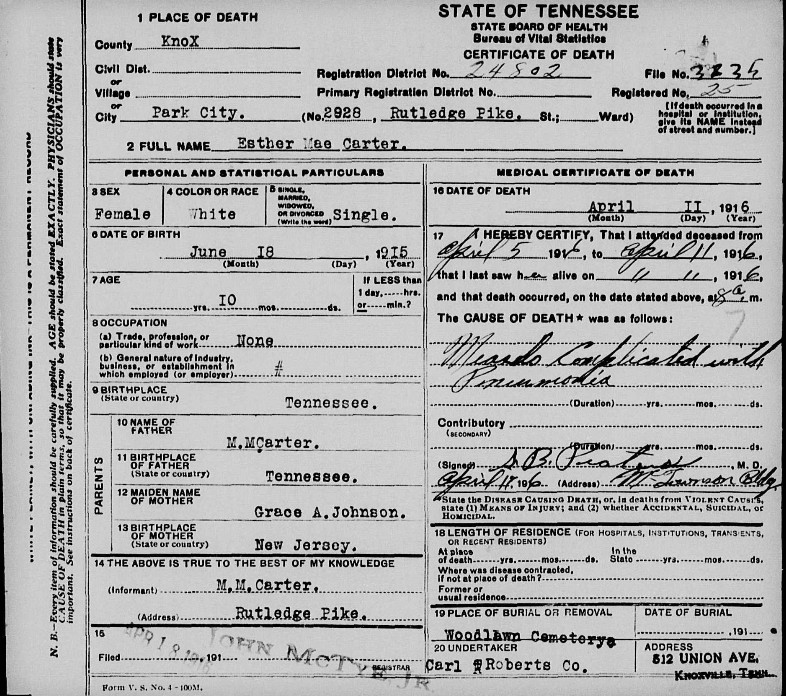 STATE OF TENNESSEE
STATE BOARD OF HEALTH
Bureau of Vital Statistics
CERTIFICATE OF DEATH
1 PLACE OF DEATH
County KnoX
Civil Dist.
or
Village
or
City Park City. (No. 2928, Rutledge Pike. St.; Ward)
Registration District No. 24802 File No.
Primary Registration District No. Registered No. 25
[If death occurred in a hospital or institution, give its NAME instead of street and number.]
2 FULL NAME Esther Mae Carter.
PERSONAL AND STATISTICAL PARTICULARS
3 SEX
Female
4 COLOR OR RACE
White
5 SINGLE, MARRIED, WIDOWED, OR DIVORCED (Write the word) Single.
6 DATE OF BIRTH
June 18, 1915
(Month) (Day) (Year)
7 AGE
yrs. 10 mos. ds.
If LESS than 1 day, hrs. or min.?
8 OCCUPATION
(a) Trade, profession, or particular kind of work None
(b) General nature of industry, business, or establishment in which employed (or employer) #
9 BIRTHPLACE
(State or country)
Tennessee.
PARENTS
10 NAME OF FATHER
M.MCarter.
11 BIRTHPLACE OF FATHER
(State or country)
Tennessee.
12 MAIDEN NAME OF MOTHER
Grace A.Johnson.
13 BIRTHPLACE OF MOTHER
(State or country)
New Jersey.
14 THE ABOVE IS TRUE TO THE BEST OF MY KNOWLEDGE
(Informant) M.M.Carter.
(Address) Rutledge Pike.
15
Filed 191
JOHN McTYE JR
REGISTRAR
Form V. S. No. 4-100M.
MEDICAL CERTIFICATE OF DEATH
16 DATE OF DEATH
April II, 1916
(Month) (Day) (Year)
17 I HEREBY CERTIFY, That I attended deceased from
April 5 1916, to April 11, 1916,
that I last saw her alive on " ", 1916
and that death occurred, on the date stated above, at 8 a m.
The CAUSE OF DEATH* was as follows:
Measels Complicated with
Pneumonia
(Duration) yrs. mos. ds.
Contributory
(SECONDARY)
(Duration) yrs. mos. ds.
(Signed) S. B. M. D.
April 1916 (Address) Bldg
*State the DISEASE CAUSING DEATH, or, in deaths from VIOLENT CAUSES, state (1) MEANS OF INJURY; and (2) whether ACCIDENTAL, SUICIDAL, or HOMICIDAL.
18 LENGTH OF RESIDENCE (FOR HOSPITALS, INSTITUTIONS, TRANSIENTS, OR RECENT RESIDENTS)
At place of death yrs. mos. ds. In the State yrs. mos. ds.
Where was disease contracted, if not at place of death?
Former or usual residence
19 PLACE OF BURIAL OR REMOVAL
Woodlawn Cemeterye
DATE OF BURIAL
191
20 UNDERTAKER
Carl Roberts Co.
ADDRESS
512 UNION AVE.
KNOXVILLE, TENN.
N. B.—Every item of information should be carefully supplied. AGE should be stated EXACTLY. PHYSICIANS should state
CAUSE OF DEATH in plain terms, so that it may be properly classified. Exact statement of OCCUPATION is very
important. See instructions on back of certificate.